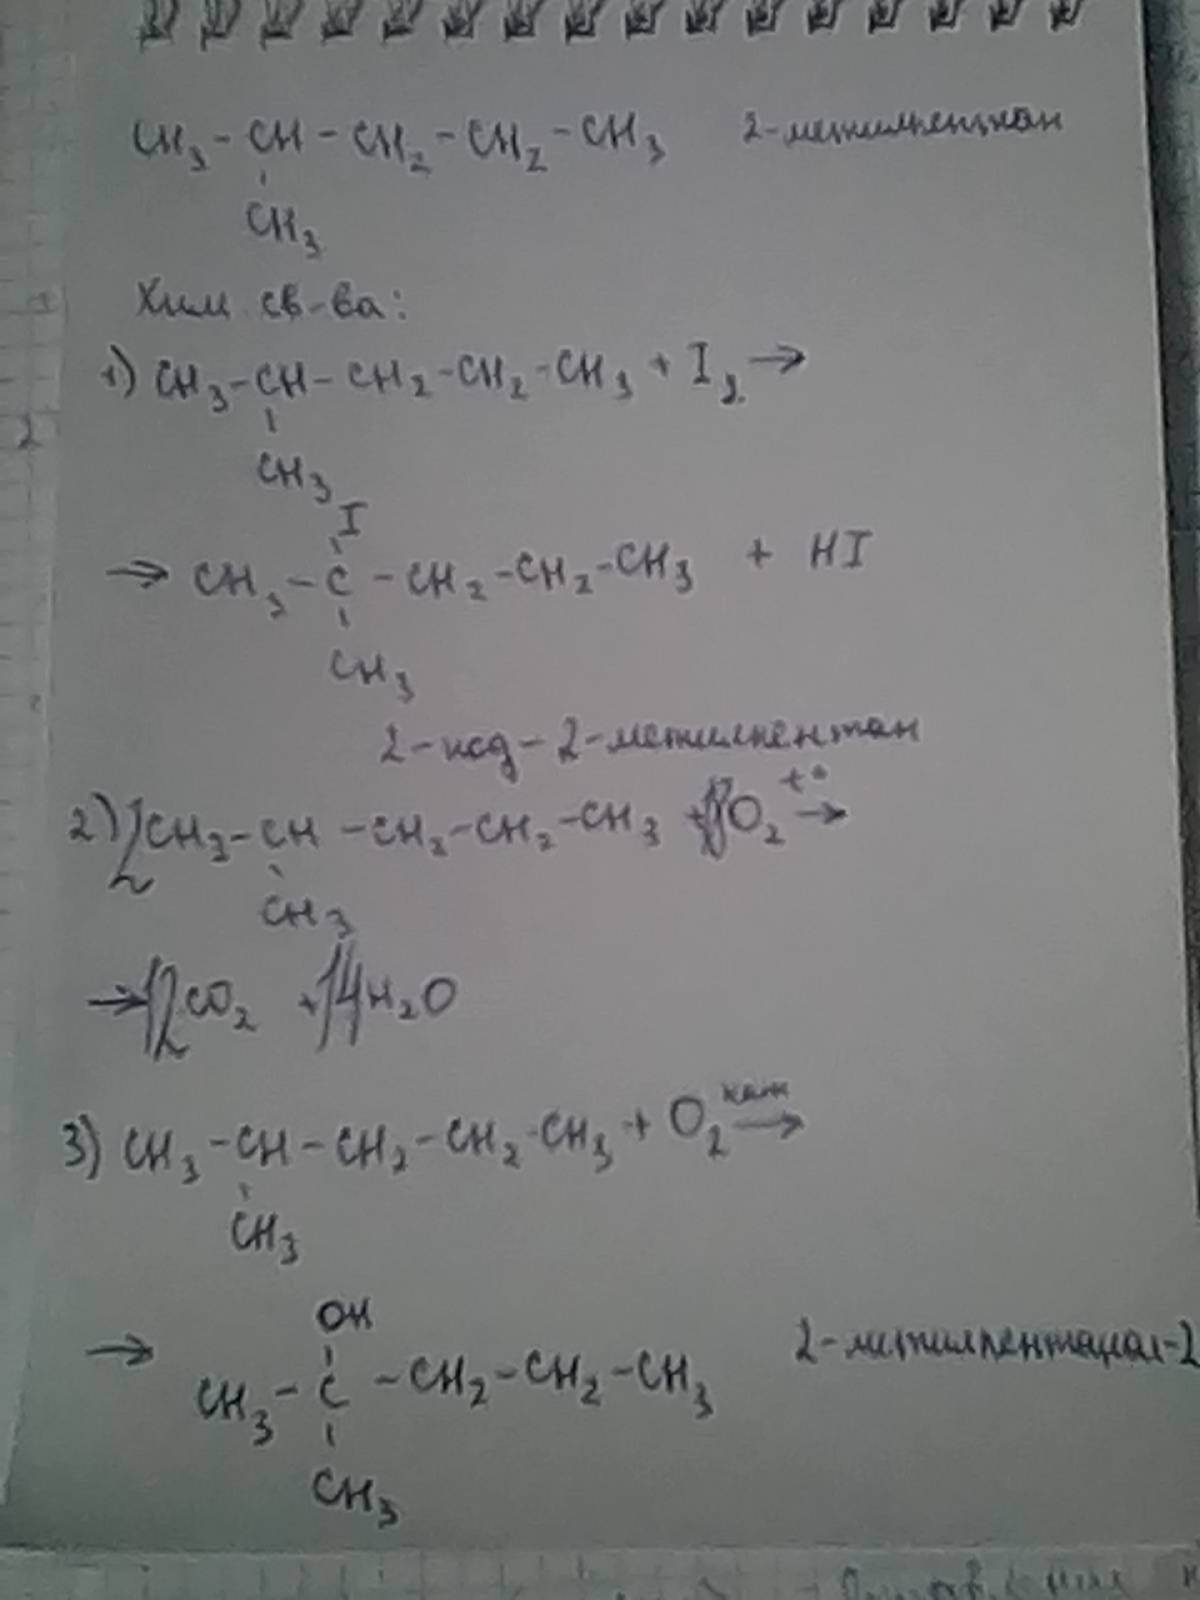 CH₃ - CH - CH₂ - CH₂ - CH₃ 2-метилпентан
CH₃
Хим. св-ва:
1) CH₃ - CH - CH₂ - CH₂ - CH₃ + I₂ →
CH₃
I
→ CH₃ - C - CH₂ - CH₂ - CH₃ + HI
CH₃
2-иод-2-метилпентан
t°
2) 2CH₃ - CH - CH₂ - CH₂ - CH₃ + O₂ →
CH₃
→ 12CO₂ + 14H₂O
кат
3) CH₃ - CH - CH₂ - CH₂ - CH₃ + O₂ →
CH₃
OH
→ CH₃ - C - CH₂ - CH₂ - CH₃ 2-метилпентанол-2
CH₃